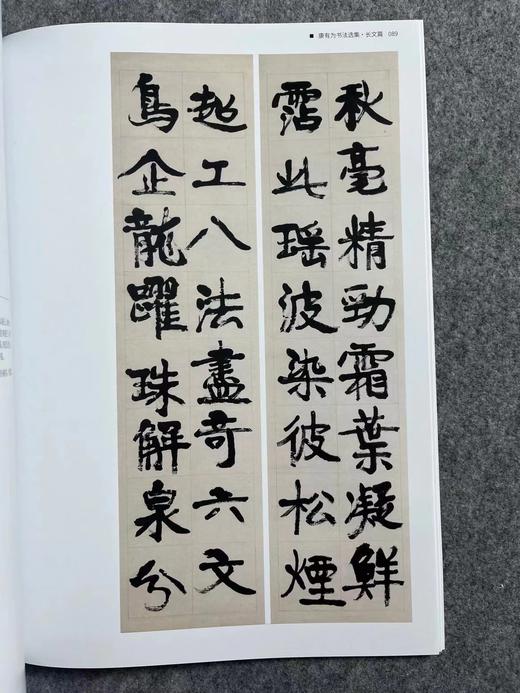 ■ 康有为书法选集·长文篇 089
秋毫精勁霜葉凝鮮
霑此瑶波染彼松煙
超工八法盡奇六文
鳥企龍躍珠解泉分